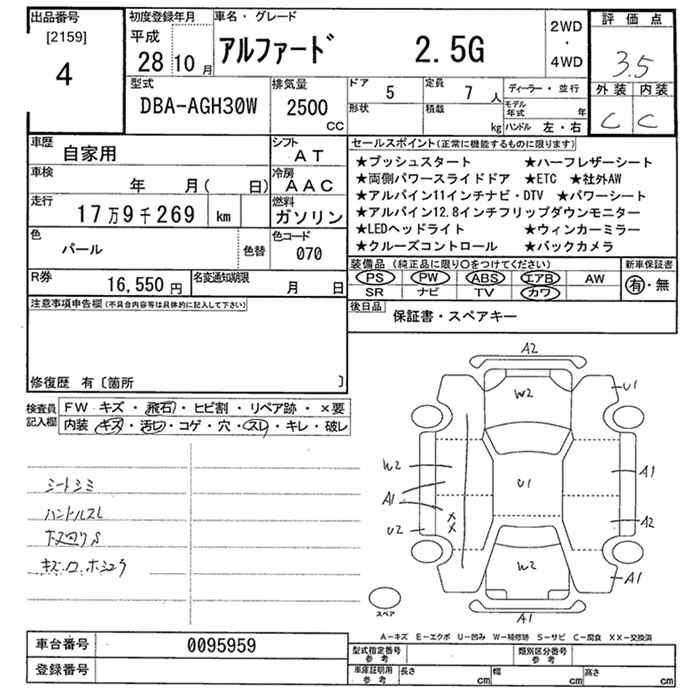 出品番号
[2159]
4
初度登録年月
平成
28 10 月
車名・グレード
アルファード 2.5G
2WD
・
4WD
評価点
3.5
外装 内装
C C
型式
DBA-AGH30W
排気量
2500
CC
ドア 5
定員 7 人
形状
積載 kg
ディーラー・並行
モデル年式 年
ハンドル 左・右
車歴 自家用
シフト AT
車検 年 月( 日)
冷房 AAC
走行 17万9千269 km
燃料 ガソリン
色 パール 色替
色コード 070
R券 16,550 円
名変通知期限 月 日
セールスポイント(正常に機能するものに限ります)
★プッシュスタート ★ハーフレザーシート
★両側パワースライドドア ★ETC ★社外AW
★アルパイン11インチナビ・DTV ★パワーシート
★アルパイン12.8インチフリップダウンモニター
★LEDヘッドライト ★ウィンカーミラー
★クルーズコントロール ★バックカメラ
装備品(純正品に限り○をつけてください)
新車保証書
PS PW ABS エアB AW
有・無
SR ナビ TV カワ
後日品 保証書・スペアキー
注意事項申告欄(不具合内容等は具体的に記入して下さい)
修復歴 有〔箇所 〕
検査員記入欄
FW キズ・飛石・ヒビ割・リペア跡・×要
内装 キズ・汚レ・コゲ・穴・スレ・キレ・破レ
シートシミ
ハンドルスレ
A2
W2
U1
W2
A1
U1
A1
U2
XX
A2
W2
A1
A1
スペア
A－キズ E－エクボ U－凹み W－補修跡 S－サビ C－腐食 XX－交換済
車台番号 0095959
登録番号
型式指定番号 参考
類別区分番号 参考
車庫証明用 参考
長さ cm 幅 cm 高さ cm